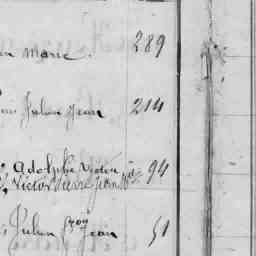 Marie. 289
Julien Jean 214
Adolphe Victor
Victor Pierre Jean 94
Julien Jean 51